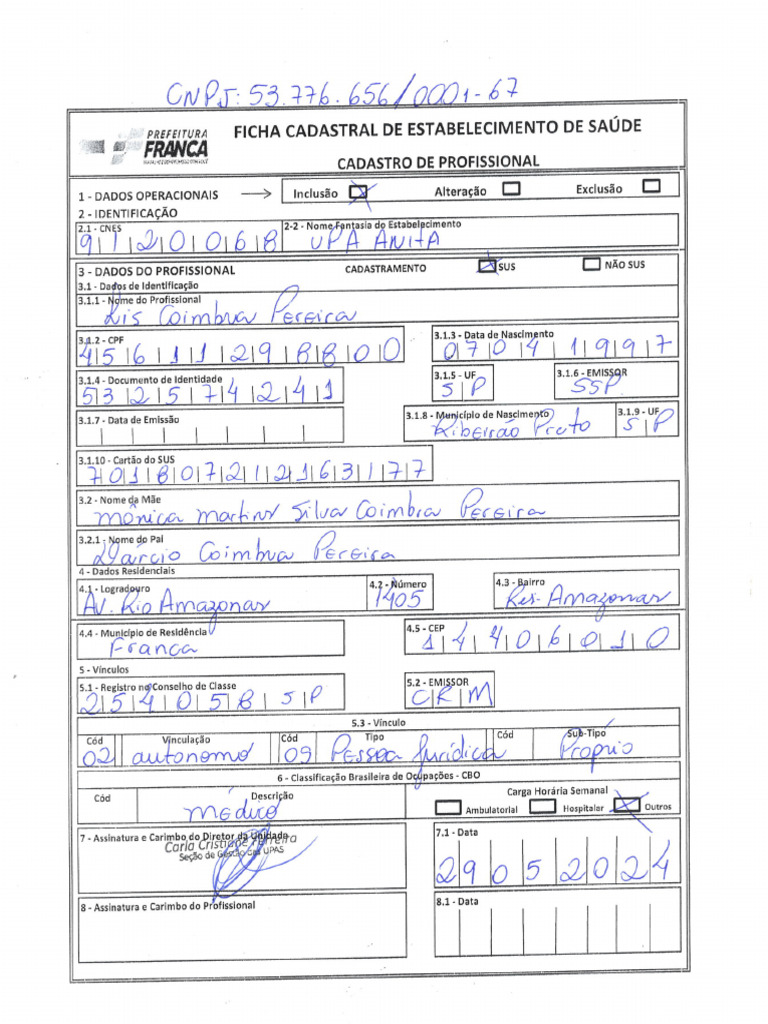 CNPJ: 53.776.656/0001-67
PREFEITURA
FRANCA
FICHA CADASTRAL DE ESTABELECIMENTO DE SAÚDE
CADASTRO DE PROFISSIONAL
1 - DADOS OPERACIONAIS Inclusão X Alteração Exclusão
2 - IDENTIFICAÇÃO
2.1 - CNES 2-2 - Nome Fantasia do Estabelecimento
9120068 UPA ANITA
3 - DADOS DO PROFISSIONAL CADASTRAMENTO X SUS NÃO SUS
3.1 - Dados de Identificação
3.1.1 - Nome do Profissional
Lis Coimbra Pereira
3.1.2 - CPF 3.1.3 - Data de Nascimento
45611298800 07041997
3.1.4 - Documento de Identidade 3.1.5 - UF 3.1.6 - EMISSOR
532574241 SP SSP
3.1.7 - Data de Emissão 3.1.8 - Município de Nascimento 3.1.9 - UF
Ribeirão Preto SP
3.1.10 - Cartão do SUS
701807212163177
3.2 - Nome da Mãe
Mônica Martins Silva Coimbra Pereira
3.2.1 - Nome do Pai
Coimbra Pereira
4 - Dados Residenciais
4.1 - Logradouro 4.2 - Número 4.3 - Bairro
Av. Rio Amazonas 1405 Res. Amazonas
4.4 - Município de Residência 4.5 - CEP
Franca 14406010
5 - Vínculos
5.1 - Registro no Conselho de Classe 5.2 - EMISSOR
254058 SP CRM
5.3 - Vínculo
Cód Vinculação Cód Tipo Cód Sub-Tipo
02 autonomo 09 Pessoa Jurídica Proprio
6 - Classificação Brasileira de Ocupações - CBO
Cód Descrição Carga Horária Semanal
médico Ambulatorial Hospitalar X Outros
7 - Assinatura e Carimbo do Diretor da Unidade 7.1 - Data
Carla Cristiane Ferreira
Seção de Gestão das UPAS
29052024
8 - Assinatura e Carimbo do Profissional 8.1 - Data